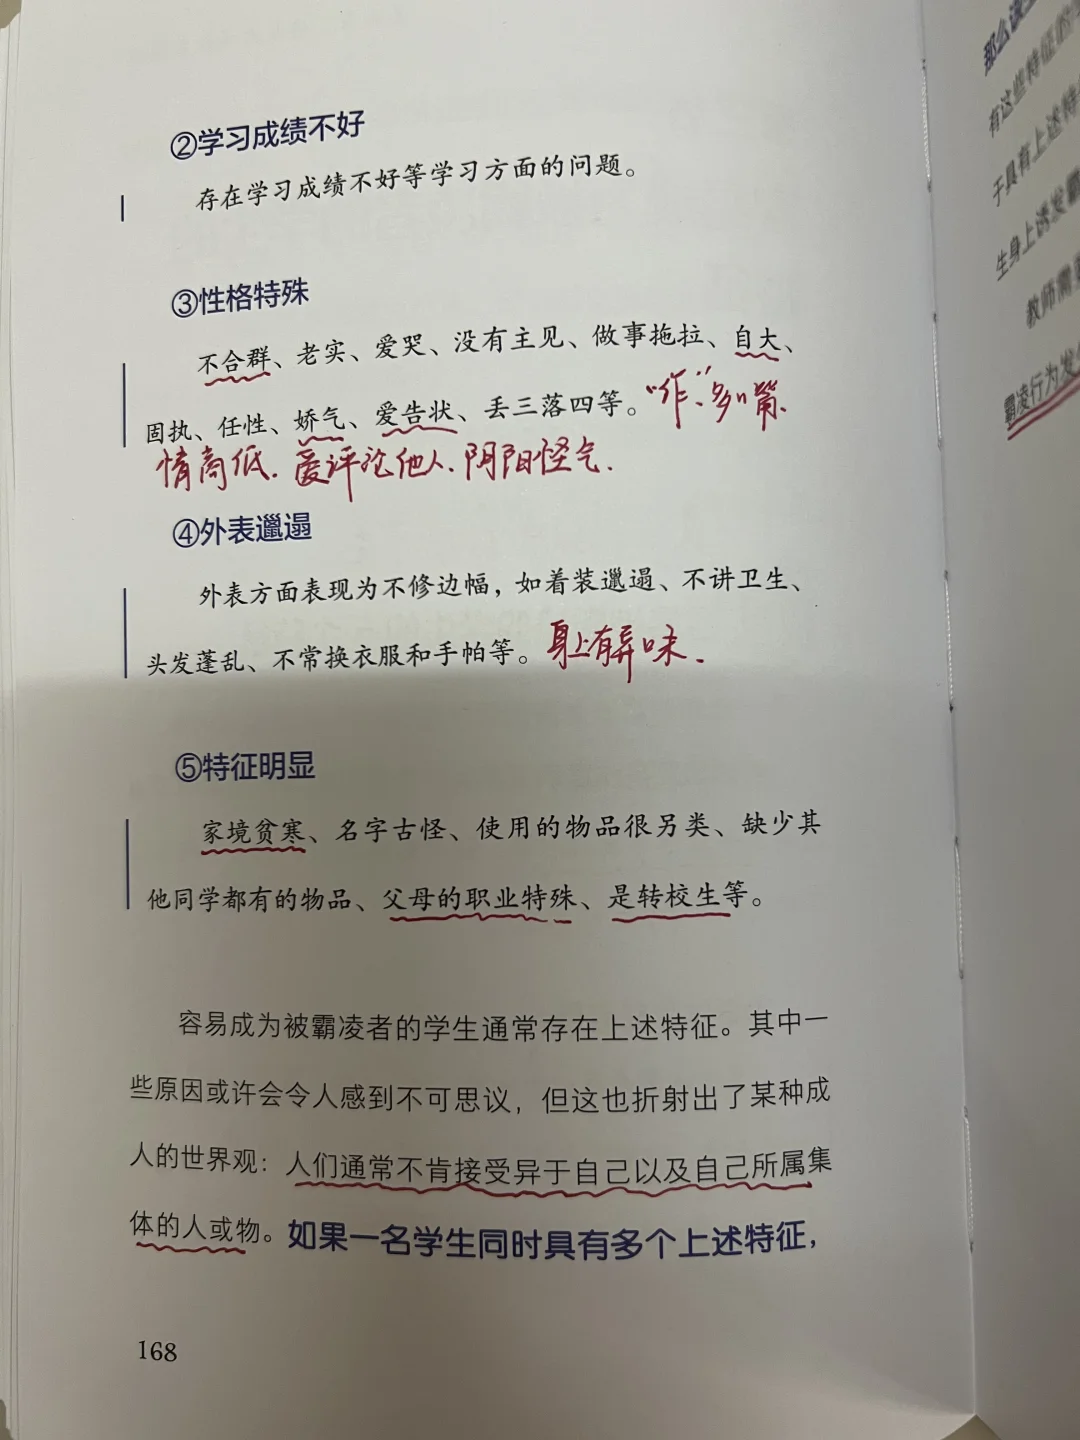 ②学习成绩不好
存在学习成绩不好等学习方面的问题。
③性格特殊
不合群、老实、爱哭、没有主见、做事拖拉、自大、
固执、任性、娇气、爱告状、丢三落四等。“作”、多嘴、
情商低、爱评论他人、阴阳怪气.
④外表邋遢
外表方面表现为不修边幅，如着装邋遢、不讲卫生、
头发蓬乱、不常换衣服和手帕等。身上有异味.
⑤特征明显
家境贫寒、名字古怪、使用的物品很另类、缺少其
他同学都有的物品、父母的职业特殊、是转校生等。
容易成为被霸凌者的学生通常存在上述特征。其中一
些原因或许会令人感到不可思议，但这也折射出了某种成
人的世界观：人们通常不肯接受异于自己以及自己所属集
体的人或物。如果一名学生同时具有多个上述特征，
168
那么该
有这些特征的
于具有上述特
生身上诱发霸
教师需
霸凌行为发